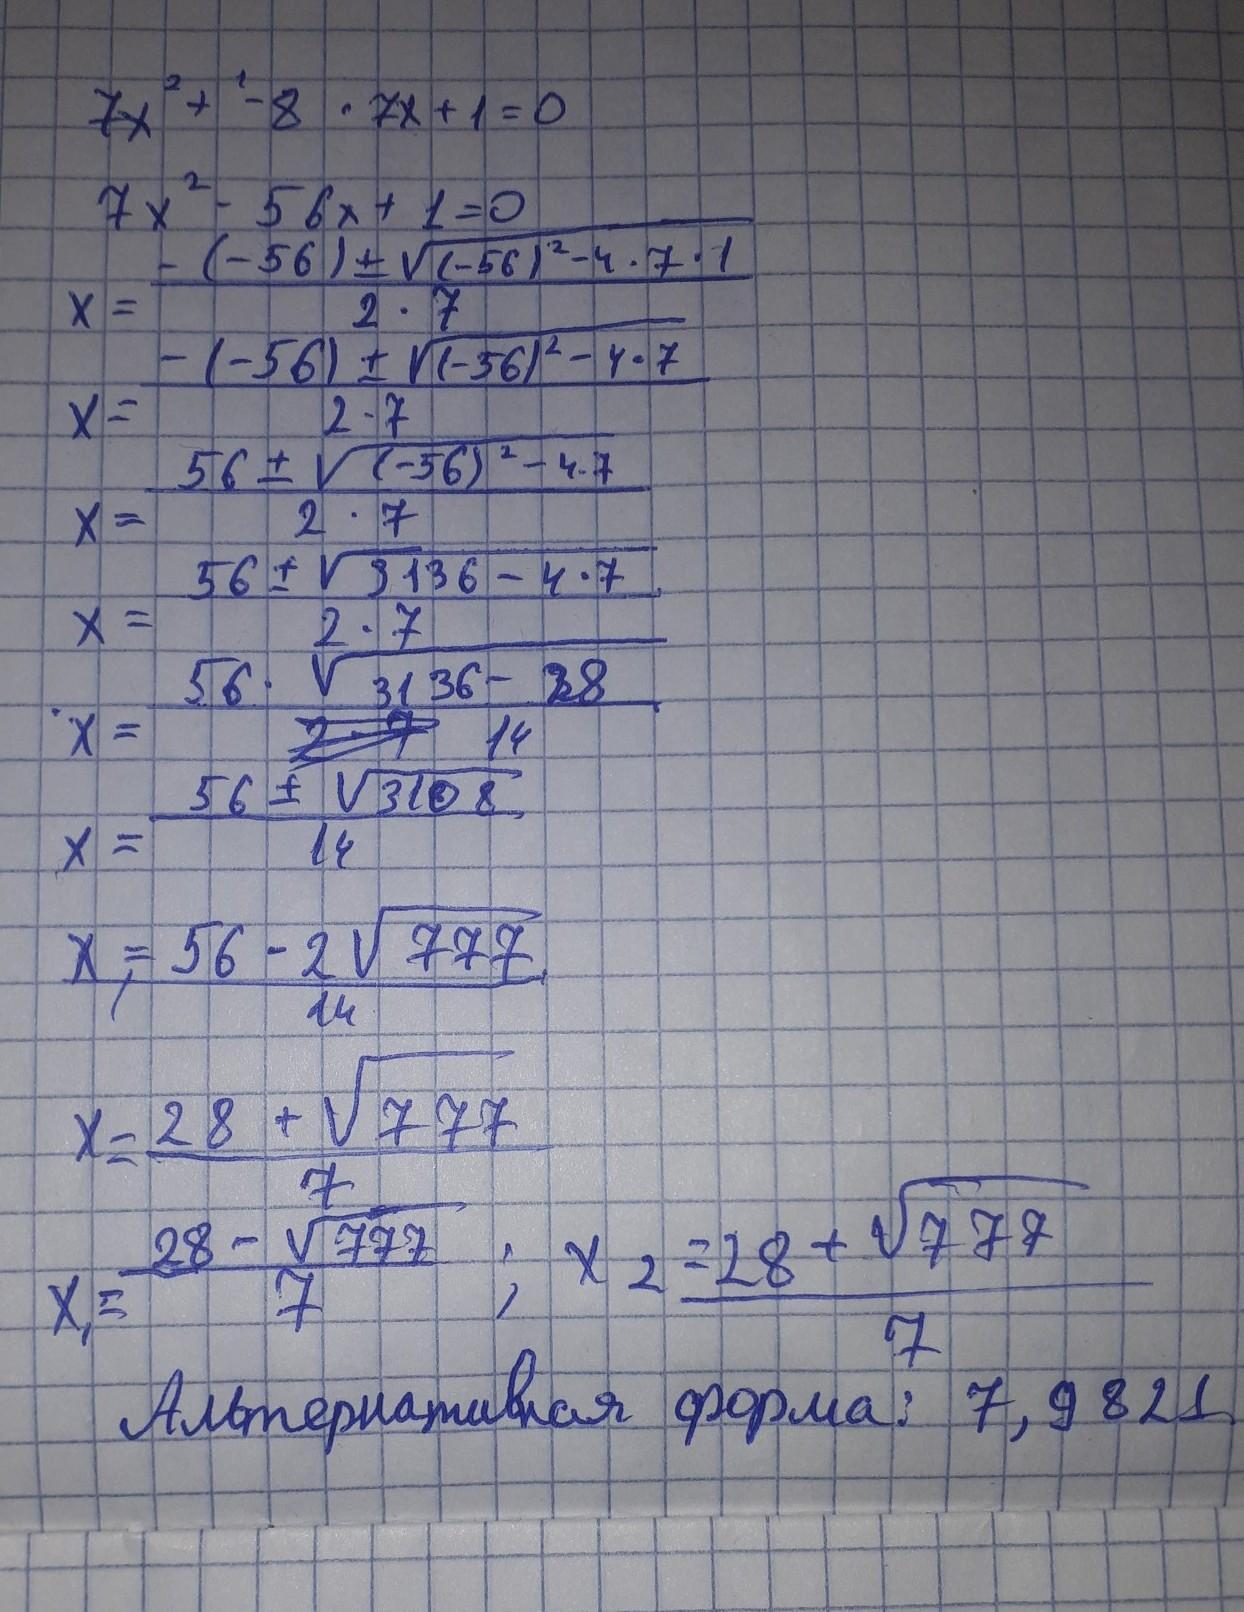 7x² + ¹ - 8 · 7x + 1 = 0
7x² - 56x + 1 = 0
x = (-(-56) ± √((-56)² - 4 · 7 · 1)) / (2 · 7)
x = (-(-56) ± √((-56)² - 4 · 7)) / (2 · 7)
x = (56 ± √((-56)² - 4 · 7)) / (2 · 7)
x = (56 ± √(3136 - 4 · 7)) / (2 · 7)
x = (56 · √(3136 - 28)) / 14
x = (56 ± √3108) / 14
x₁ = (56 - 2√777) / 14
x = (28 + √777) / 7
x₁ = (28 - √777) / 7 ; x₂ = (28 + √777) / 7
Альтернативная форма: 7,9821